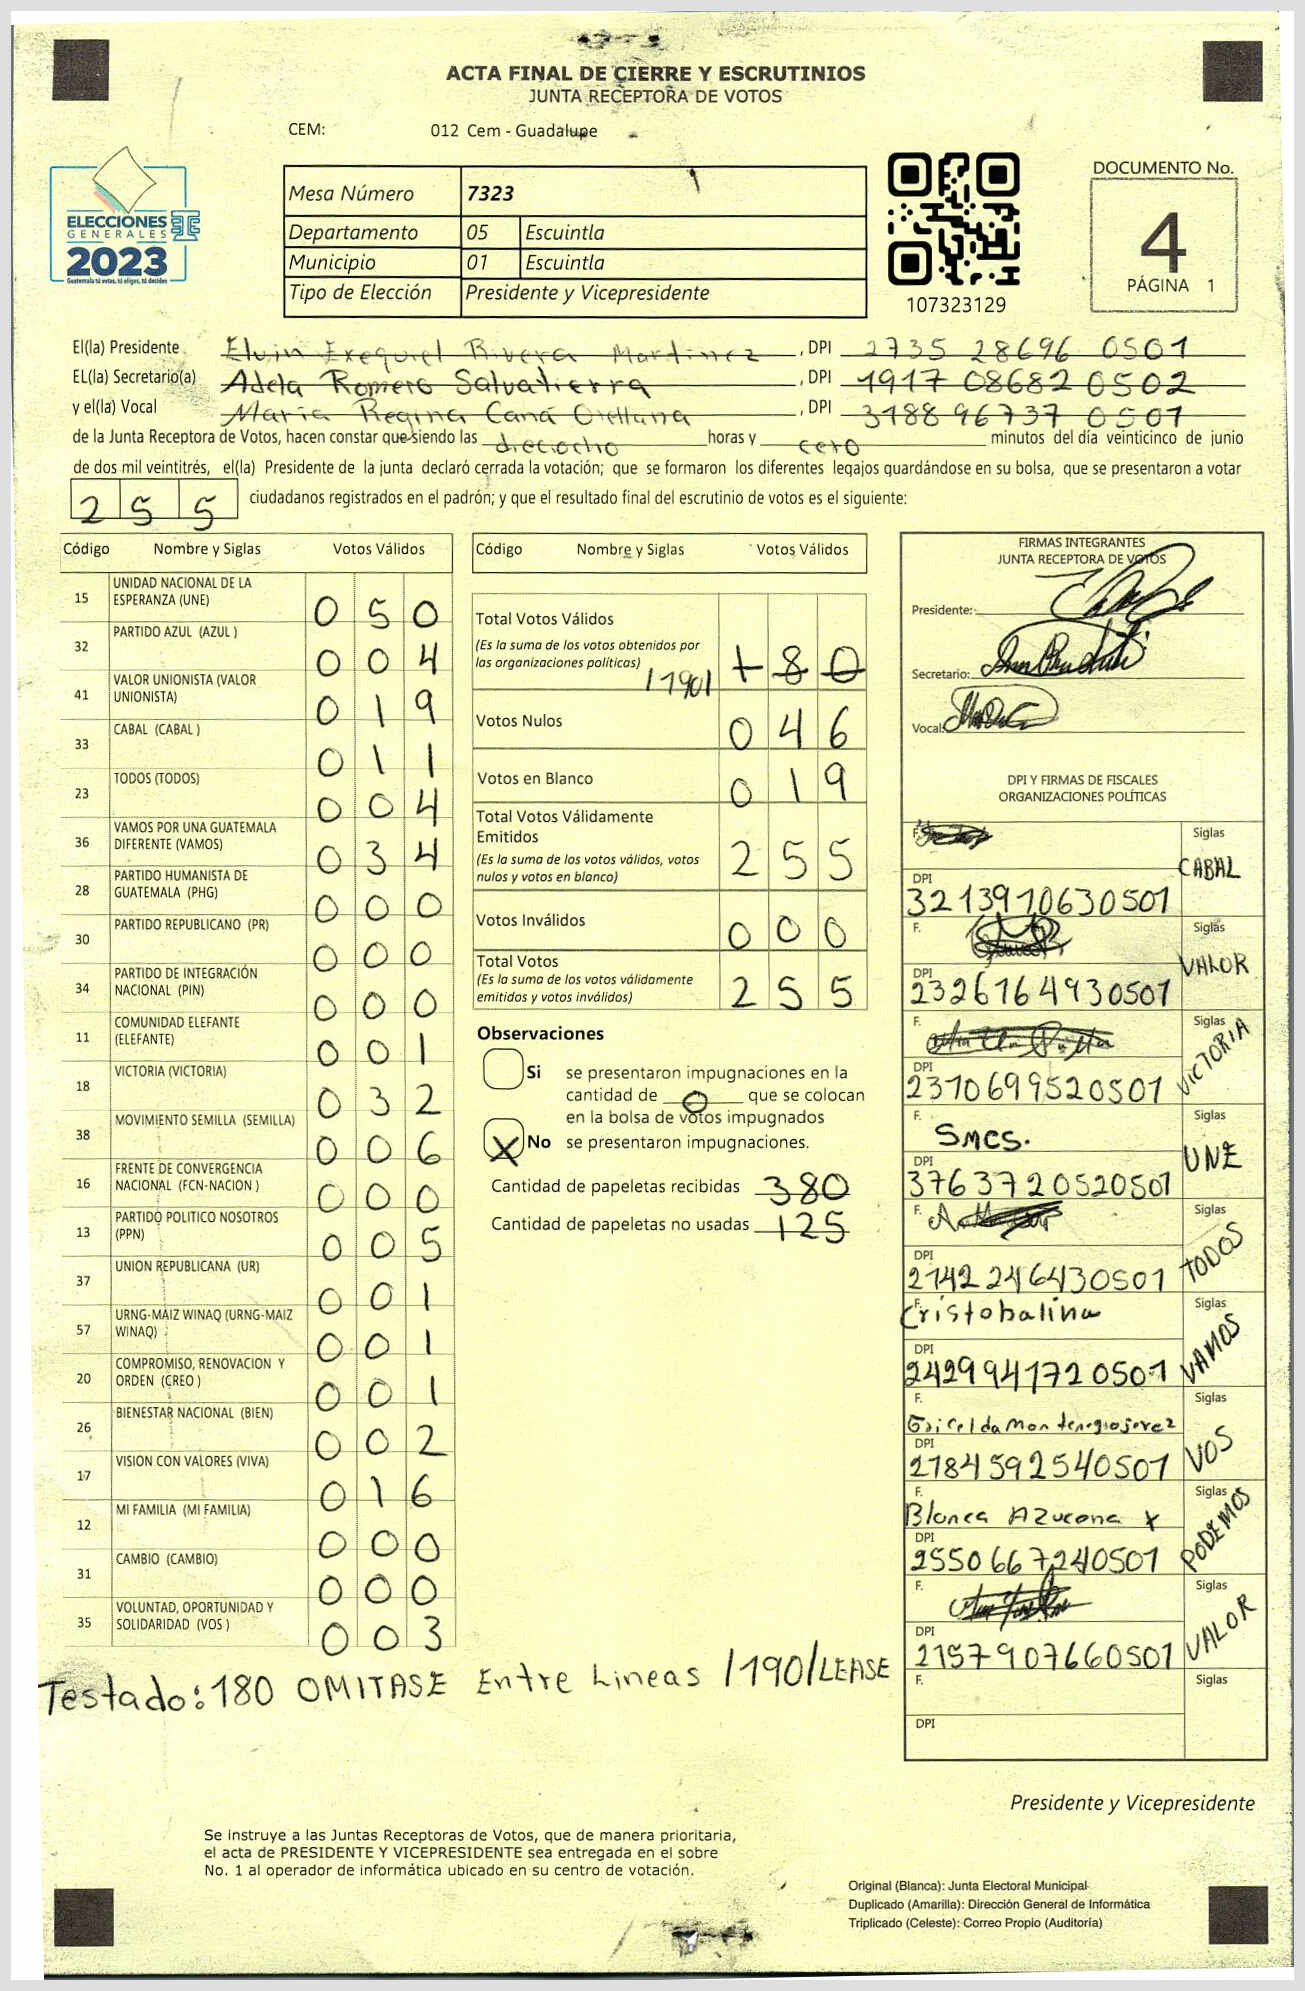 ACTA FINAL DE CIERRE Y ESCRUTINIOS
JUNTA RECEPTORA DE VOTOS
CEM: 012 Cem - Guadalupe
ELECCIONES
GENERALES
2023
Guatemala tú votas, tú eliges, tú decides
Mesa Número 7323
Departamento 05 Escuintla
Municipio 01 Escuintla
Tipo de Elección Presidente y Vicepresidente
107323129
DOCUMENTO No.
4
PÁGINA 1
El(la) Presidente Elvin Exequiel Rivera Martinez, DPI 2735 28696 0501
EL(la) Secretario(a) Adela Romero Salvatierra, DPI 1917 08682 0502
y el(la) Vocal Maria Regina Caná Orellana, DPI 3188 96737 0501
de la Junta Receptora de Votos, hacen constar que siendo las dieciocho horas y cero minutos del día veinticinco de junio
de dos mil veintitrés, el(la) Presidente de la junta declaró cerrada la votación; que se formaron los diferentes legajos guardándose en su bolsa, que se presentaron a votar
255 ciudadanos registrados en el padrón; y que el resultado final del escrutinio de votos es el siguiente:
Código Nombre y Siglas Votos Válidos
15 UNIDAD NACIONAL DE LA ESPERANZA (UNE) 050
32 PARTIDO AZUL (AZUL ) 004
41 VALOR UNIONISTA (VALOR UNIONISTA) 019
33 CABAL (CABAL ) 011
23 TODOS (TODOS) 004
36 VAMOS POR UNA GUATEMALA DIFERENTE (VAMOS) 034
28 PARTIDO HUMANISTA DE GUATEMALA (PHG) 000
30 PARTIDO REPUBLICANO (PR) 000
34 PARTIDO DE INTEGRACIÓN NACIONAL (PIN) 000
11 COMUNIDAD ELEFANTE (ELEFANTE) 001
18 VICTORIA (VICTORIA) 032
38 MOVIMIENTO SEMILLA (SEMILLA) 006
16 FRENTE DE CONVERGENCIA NACIONAL (FCN-NACION ) 000
13 PARTIDO POLITICO NOSOTROS (PPN) 005
37 UNION REPUBLICANA (UR) 001
57 URNG-MAIZ WINAQ (URNG-MAIZ WINAQ) 001
20 COMPROMISO, RENOVACION Y ORDEN (CREO ) 001
26 BIENESTAR NACIONAL (BIEN) 002
17 VISION CON VALORES (VIVA) 016
12 MI FAMILIA (MI FAMILIA) 000
31 CAMBIO (CAMBIO) 000
35 VOLUNTAD, OPORTUNIDAD Y SOLIDARIDAD (VOS ) 003
Código Nombre y Siglas Votos Válidos
Total Votos Válidos
(Es la suma de los votos obtenidos por
las organizaciones políticas) /190/ 180
Votos Nulos 046
Votos en Blanco 019
Total Votos Válidamente
Emitidos
(Es la suma de los votos válidos, votos
nulos y votos en blanco) 255
Votos Inválidos 000
Total Votos
(Es la suma de los votos válidamente
emitidos y votos inválidos) 255
Observaciones
Si se presentaron impugnaciones en la
cantidad de 0 que se colocan
en la bolsa de votos impugnados
X No se presentaron impugnaciones.
Cantidad de papeletas recibidas 380
Cantidad de papeletas no usadas 125
FIRMAS INTEGRANTES
JUNTA RECEPTORA DE VOTOS
Presidente:
Secretario:
Vocal:
DPI Y FIRMAS DE FISCALES
ORGANIZACIONES POLÍTICAS
F. Siglas CABAL
DPI 3213910630501
F. Siglas VALOR
DPI 2326164930501
F. Siglas VICTORIA
DPI 2370699520501
F. SMCS. Siglas UNE
DPI 3763720520501
F. Siglas TODOS
DPI 2142246430501
F. Cristobalina Siglas VAMOS
DPI 2429941720501
F. Siglas VOS
DPI 2184592540501
F. Blanca Azucena x Siglas PODEMOS
DPI 2550667240501
F. Siglas VALOR
DPI 2157907660501
F. Siglas
DPI
Testado: 180 OMITASE Entre Lineas /190/LEASE
Presidente y Vicepresidente
Se instruye a las Juntas Receptoras de Votos, que de manera prioritaria,
el acta de PRESIDENTE Y VICEPRESIDENTE sea entregada en el sobre
No. 1 al operador de informática ubicado en su centro de votación.
Original (Blanca): Junta Electoral Municipal
Duplicado (Amarilla): Dirección General de Informática
Triplicado (Celeste): Correo Propio (Auditoría)